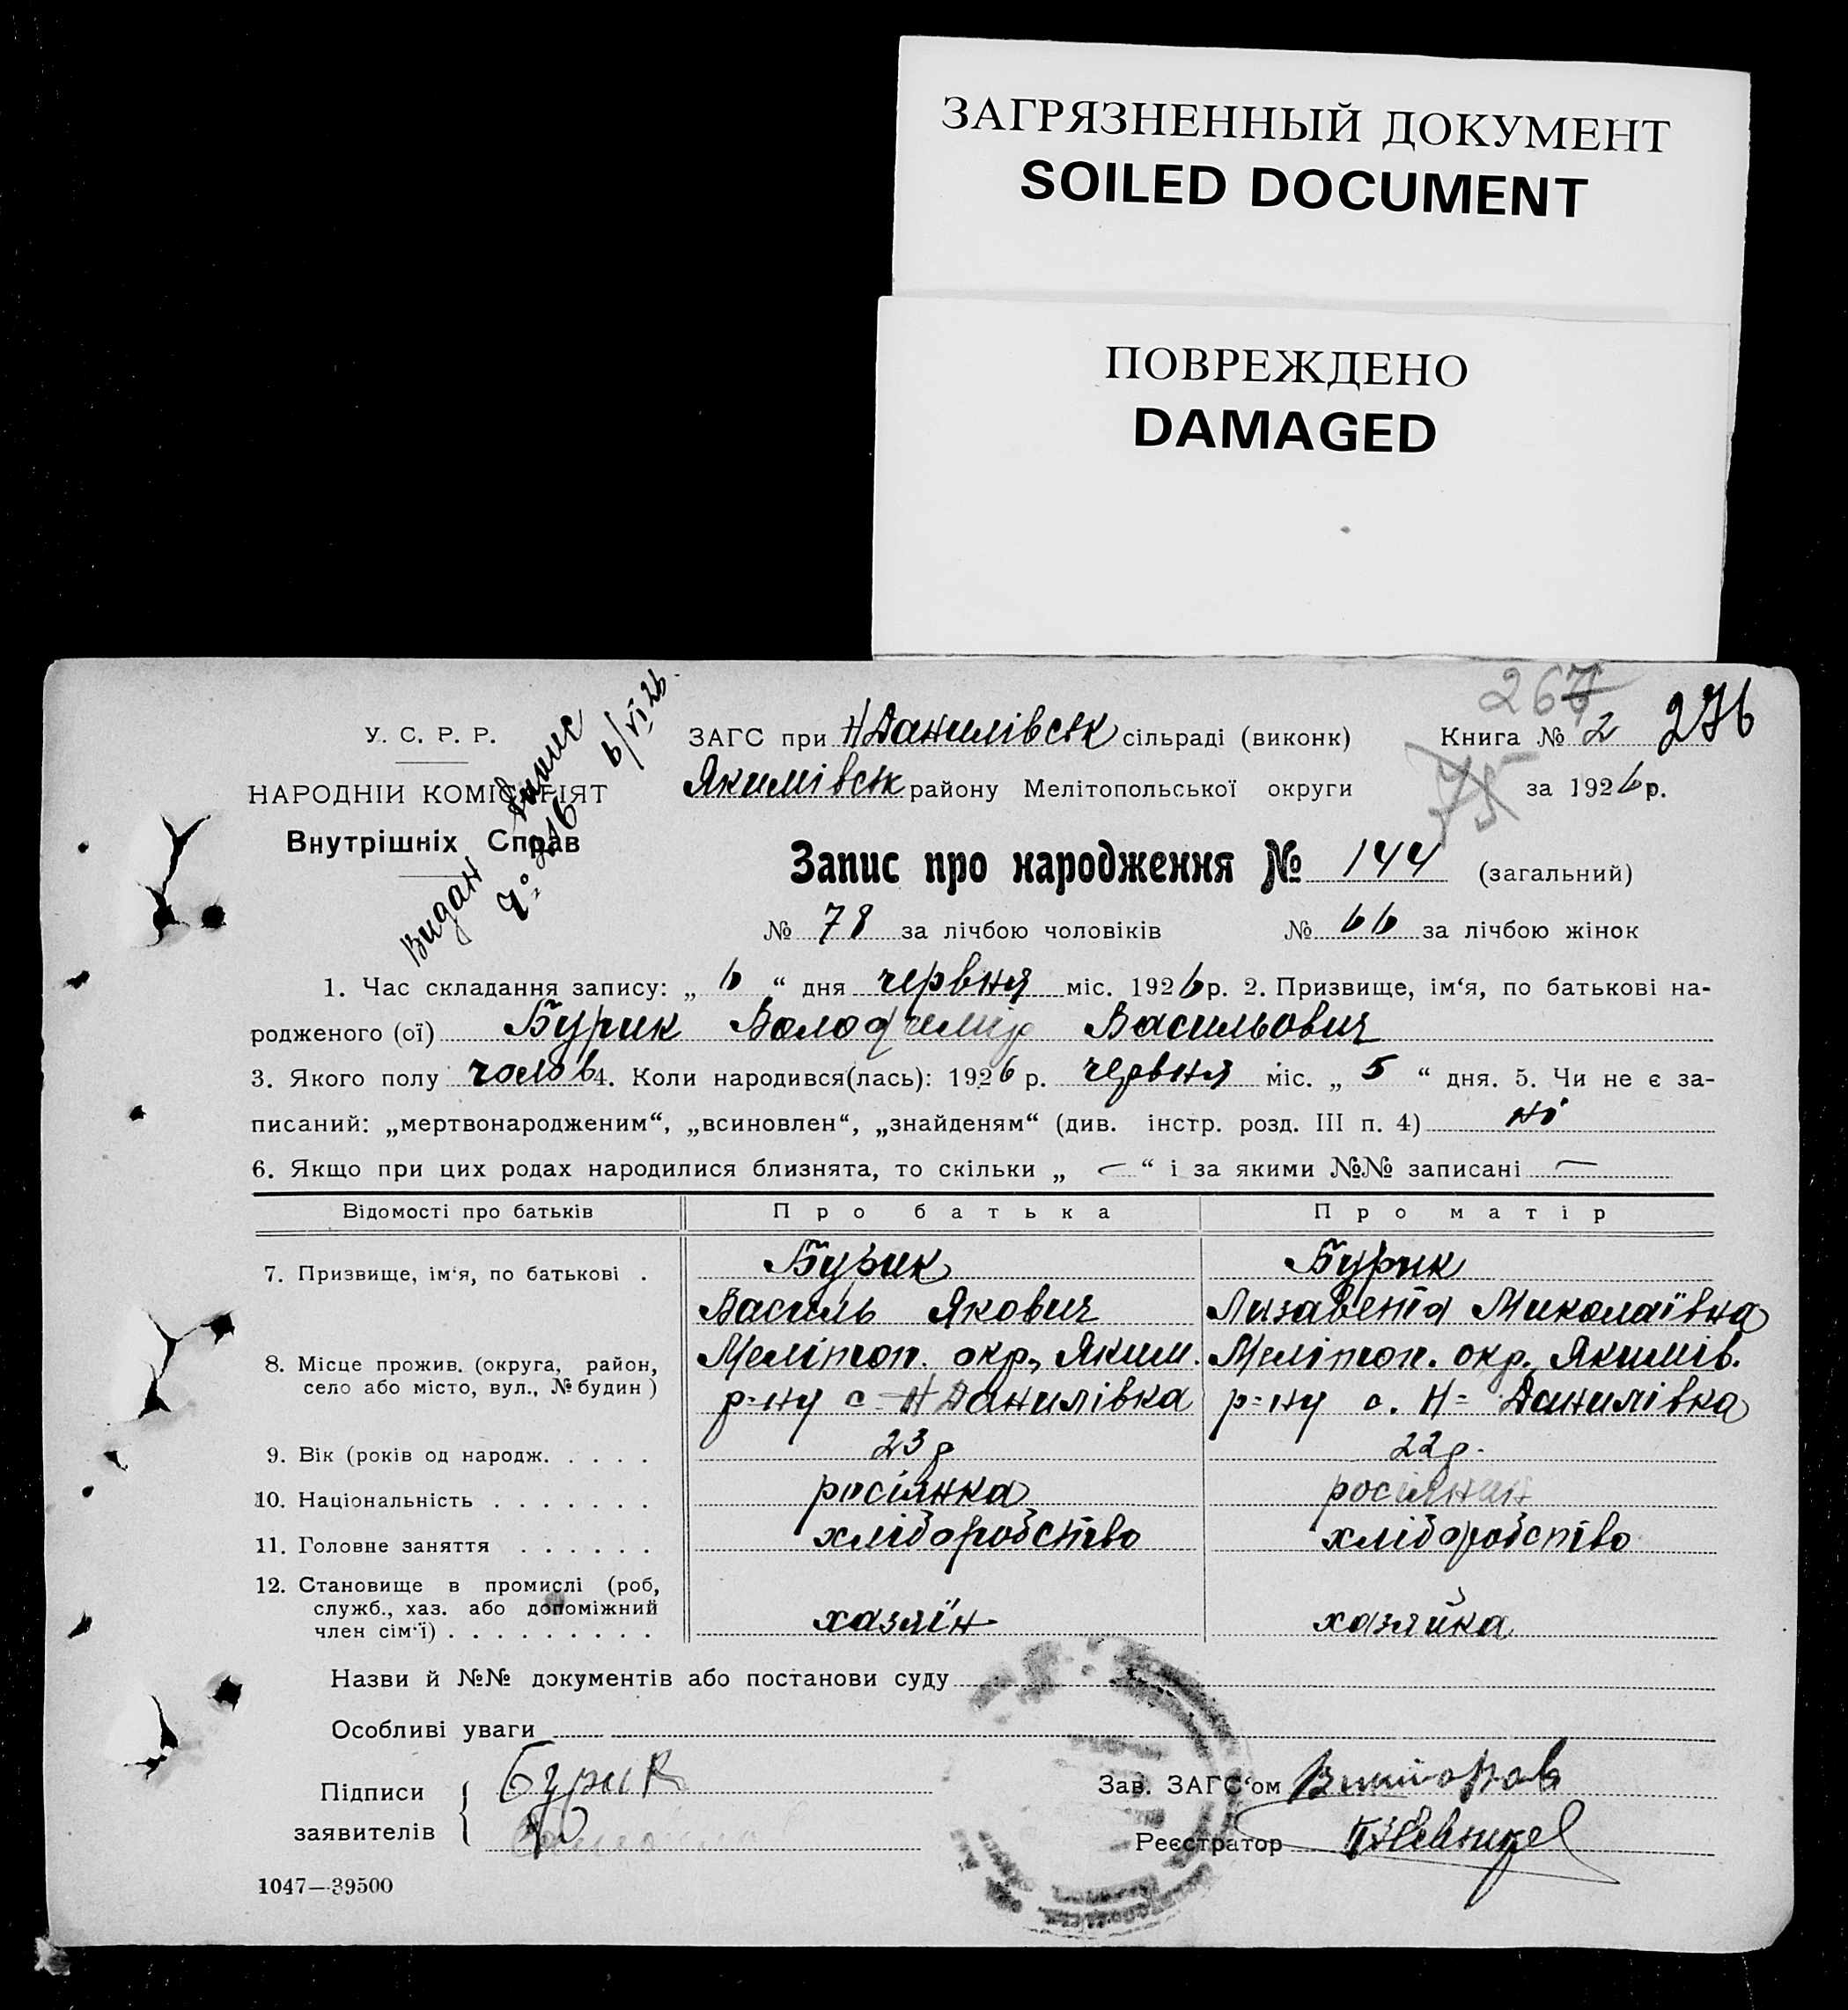 ЗАГРЯЗНЕННЫЙ ДОКУМЕНТ
SOILED DOCUMENT
ПОВРЕЖДЕНО
DAMAGED
267
276
75
У. С. Р. Р.
НАРОДНІЙ КОМІСАРІЯТ
Внутрішніх Справ
Видан випис
6/VI 26.
ЗАГС при Н Данилівськ сільраді (виконк) Книга № 2
Якимівськ району Мелітопольської округи за 1926 р.
Запис про народження № 144 (загальний)
№ 78 за лічбою чоловіків № 66 за лічбою жінок
1. Час складання запису: „ 6 “ дня червня міс. 1926 р. 2. Призвище, ім‘я, по батькові на-
родженого (ої) Бурик Володимир Васильович
3. Якого полу чолов 4. Коли народився(лась): 1926 р. червня міс. „ 5 “ дня. 5. Чи не є за-
писаний: „мертвонародженим“, „всиновлен“, „знайденям“ (див. інстр. розд. III п. 4) ні
6. Якщо при цих родах народилися близнята, то скільки „ — “ і за якими №№ записані —
Відомості про батьків Про батька Про матір
7. Призвище, ім‘я, по батькові . Бурик Бурик
Василь Якович Лизавета Миколаївна
8. Місце прожив. (округа, район, село або місто, вул., № будин ) Мелітоп. окр., Яким. Мелітоп. окр. Якимів.
р-ну с Н Данилівка р=ну с. Н= Данилівка
9. Вік (років од народж. . . . . 23 р 22 р.
10. Національність . . . . . . . росіянка росіянин
11. Головне заняття . . . . . . хліборобство хліборобство
12. Становище в промислі (роб, служб., хаз. або допоміжний член сім‘ї) . . . . . . . . . хазяїн хазяйка
Назви й №№ документів або постанови суду
Особливі уваги
Підписи заявителів Бурик
Зав. ЗАГС‘ом
Реєстратор
1047—39500